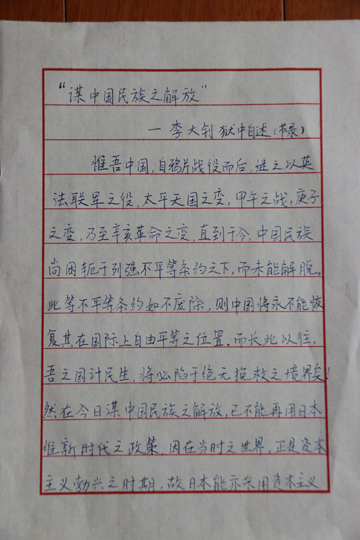 “谋中国民族之解放”
—李大钊狱中自述(节录)
惟吾中国,自鸦片战役而后,继之以英
法联军之役,太平天国之变,甲午之战,庚子
之变,乃至辛亥革命之变,直到于今,中国民族
尚困轭于列强不平等条约之下,而未能解脱。
此等不平等条约如不废除,则中国将永不能恢
复其在国际上自由平等之位置。而长此以往,
吾之国计民生,将必陷于绝无挽救之境界矣!
然在今日谋中国民族之解放,已不能再用日本
维新时代之政策,因在当时之世界,正是资本
主义勃兴之时期,故日本能亦采用资本主义